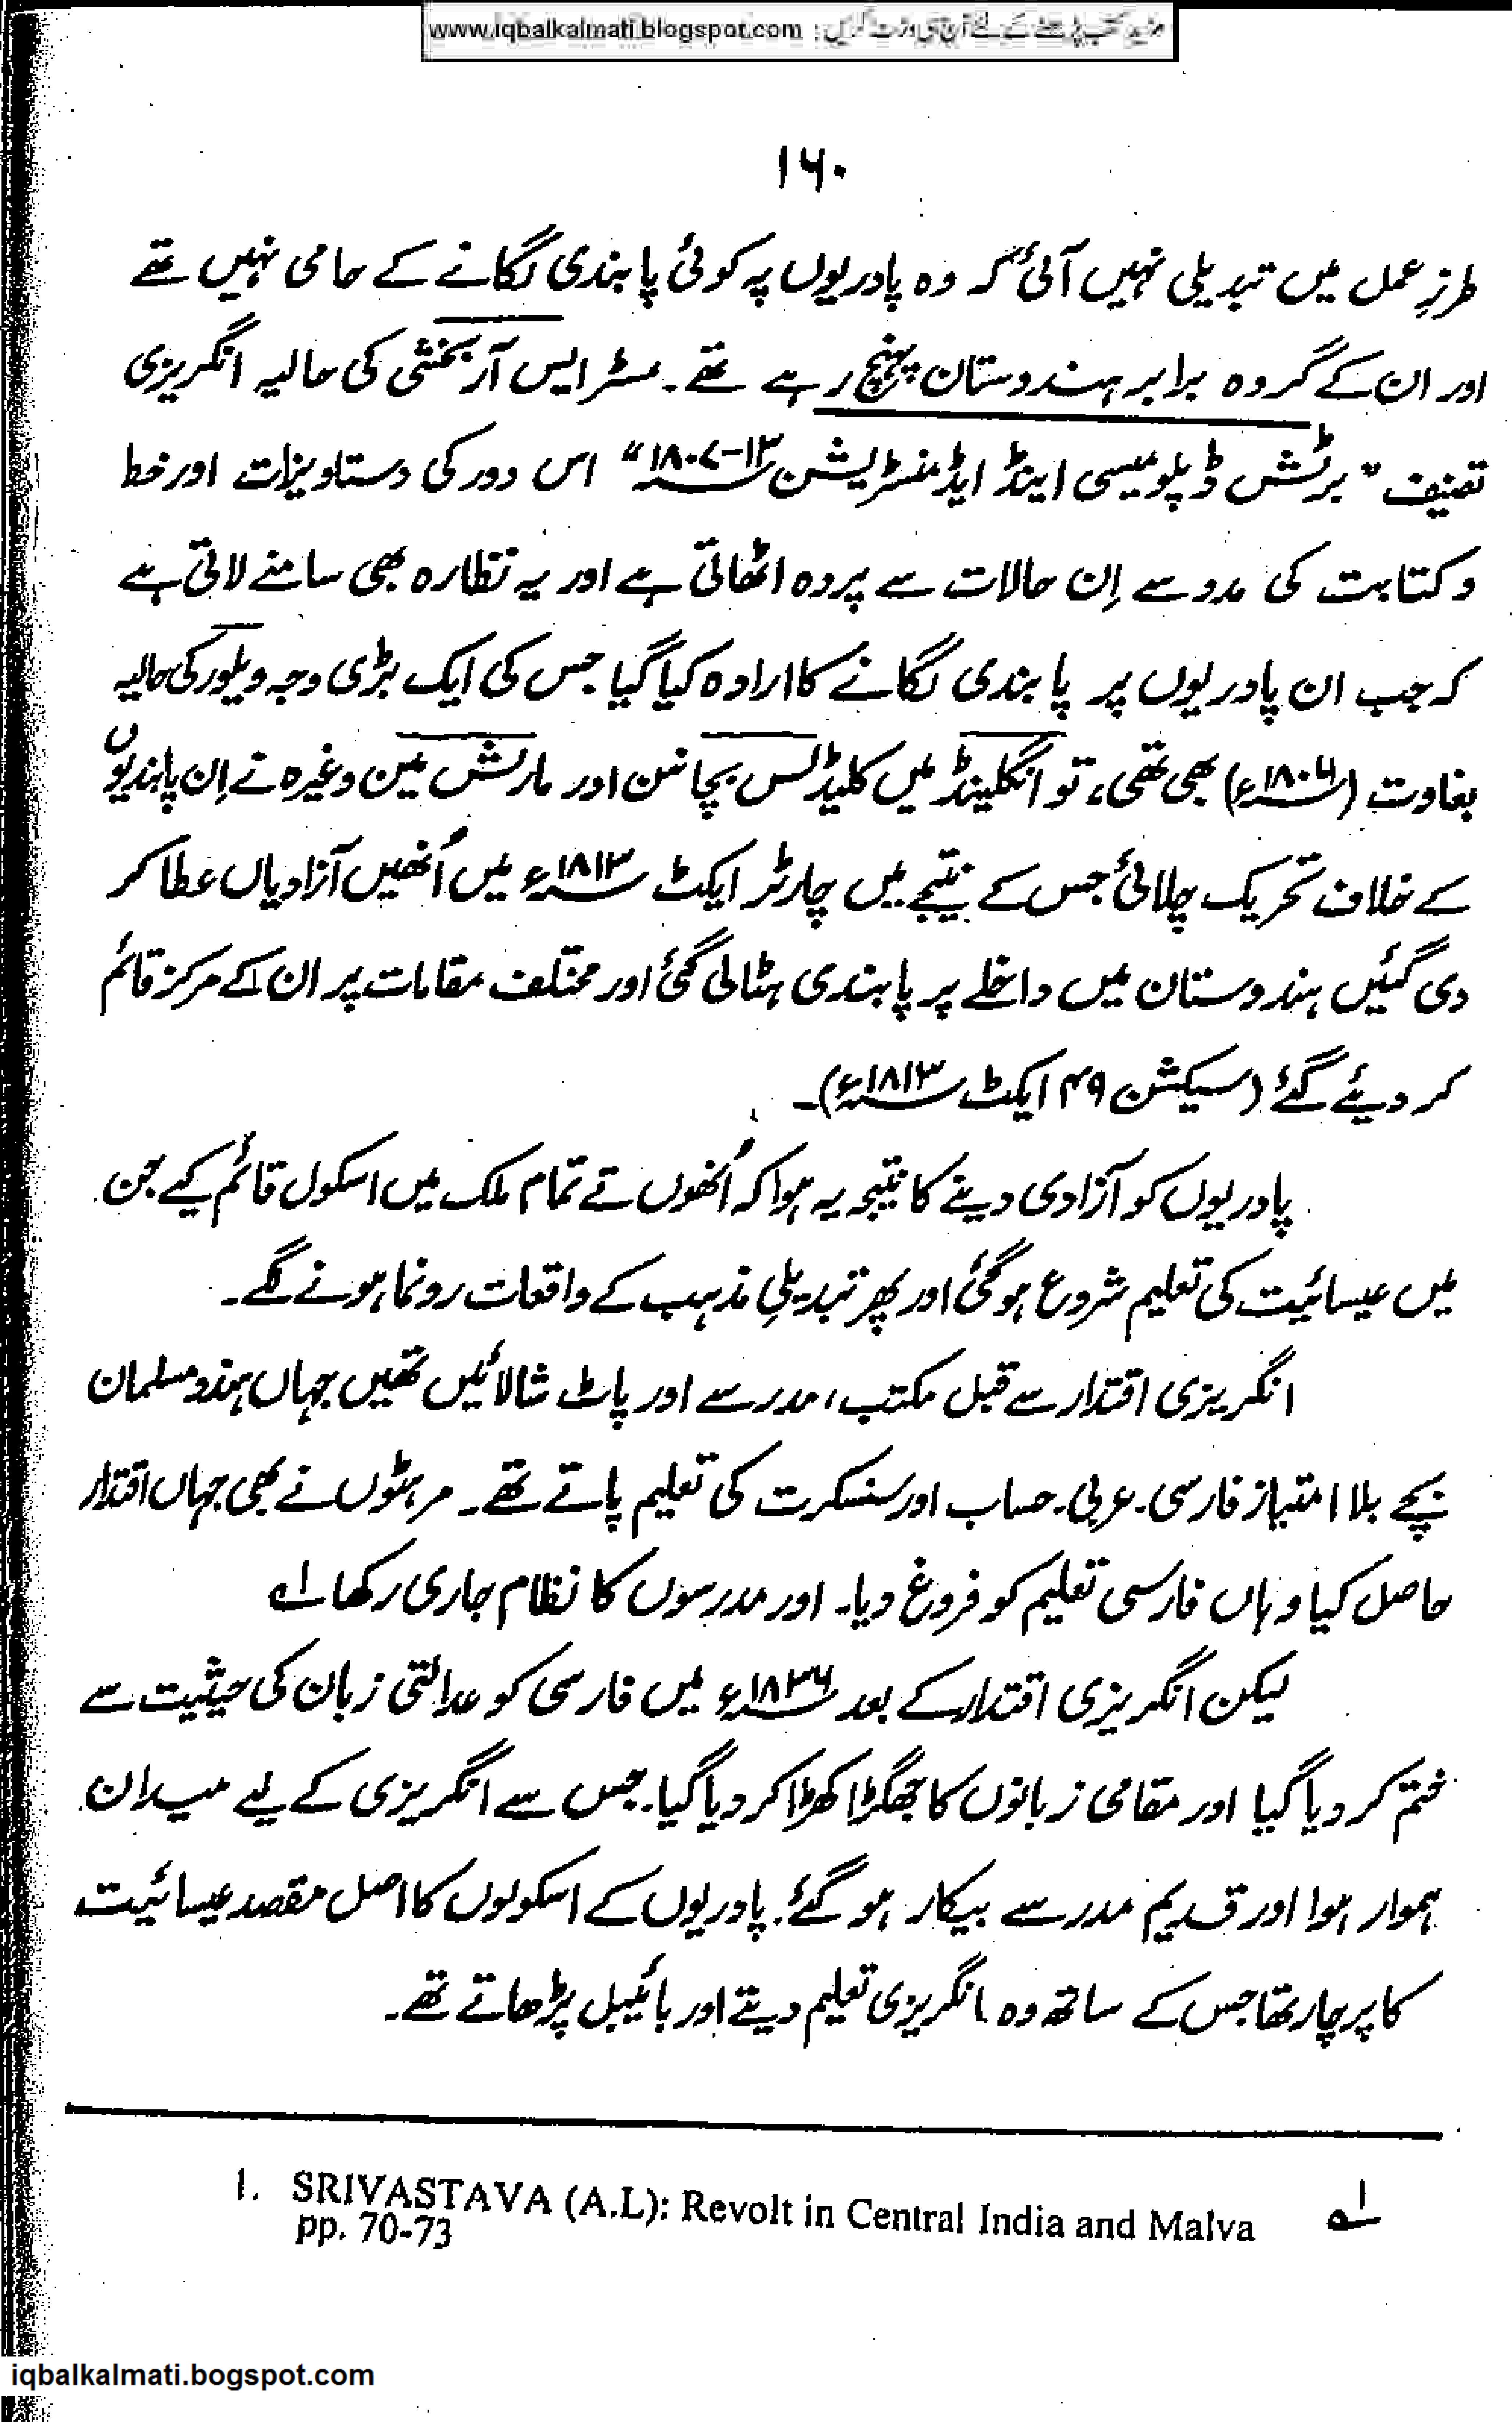 www.iqbalkalmati.blogspot.com : مزید کتب پڑھنے کے لئے آج ہی وزٹ کریں
۱۶۰
طرزِ عمل میں تبدیلی نہیں آئی کہ وہ پادریوں پہ کوئی پابندی لگانے کے حامی نہیں تھے
اور ان کے گروہ برابر ہندوستان پہنچ رہے تھے۔ مسٹر ایس آر بخشی کی حالیہ انگریزی
تصنیف "برٹش ڈپلومیسی اینڈ ایڈمنسٹریشن ۱۳-۱۸۰۷ء" اس دور کی دستاویزات اور خط
و کتابت کی مدد سے اِن حالات سے پردہ اٹھاتی ہے اور یہ نظارہ بھی سامنے لاتی ہے
کہ جب ان پادریوں پر پابندی لگانے کا ارادہ کیا گیا جس کی ایک بڑی وجہ ویلور کی حالیہ
بغاوت (۱۸۰۶ء) بھی تھی، تو انگلینڈ میں کلیڈلس بچانن اور مارش مین وغیرہ نے اِن پابندیوں
کے خلاف تحریک چلائی جس کے نتیجے میں چارٹر ایکٹ ۱۸۱۳ء میں اُنھیں آزادیاں عطا کر
دی گئیں ہندوستان میں داخلے پر پابندی ہٹا لی گئی اور مختلف مقامات پر ان کے مرکز قائم
کر دیئے گئے (سیکشن ۴۹ ایکٹ ۱۸۱۳ء)۔
پادریوں کو آزادی دینے کا نتیجہ یہ ہوا کہ اُنھوں نے تمام ملک میں اسکول قائم کیے جن
میں عیسائیت کی تعلیم شروع ہو گئی اور پھر تبدیلیِ مذہب کے واقعات رونما ہونے لگے۔
انگریزی اقتدار سے قبل مکتب، مدرسے اور پاٹ شالائیں تھیں جہاں ہندو مسلمان
بچے بلا امتیاز فارسی۔ عربی۔ حساب اور سنسکرت کی تعلیم پاتے تھے۔ مرہٹوں نے بھی جہاں اقتدار
حاصل کیا وہاں فارسی تعلیم کو فروغ دیا۔ اور مدرسوں کا نظام جاری رکھا ۱؎
لیکن انگریزی اقتدار کے بعد ۱۸۳۶ء میں فارسی کو عدالتی زبان کی حیثیت سے
ختم کر دیا گیا اور مقامی زبانوں کا جھگڑا کھڑا کر دیا گیا۔ جس سے انگریزی کے لیے میدان
ہموار ہوا اور قدیم مدرسے بیکار ہو گئے۔ پادریوں کے اسکولوں کا اصل مقصد عیسائیت
کا پرچار تھا جس کے ساتھ وہ انگریزی تعلیم دیتے اور بائیبل پڑھاتے تھے۔
۱؎ 1. SRIVASTAVA (A.L): Revolt in Central India and Malva
pp. 70-73
iqbalkalmati.bogspot.com